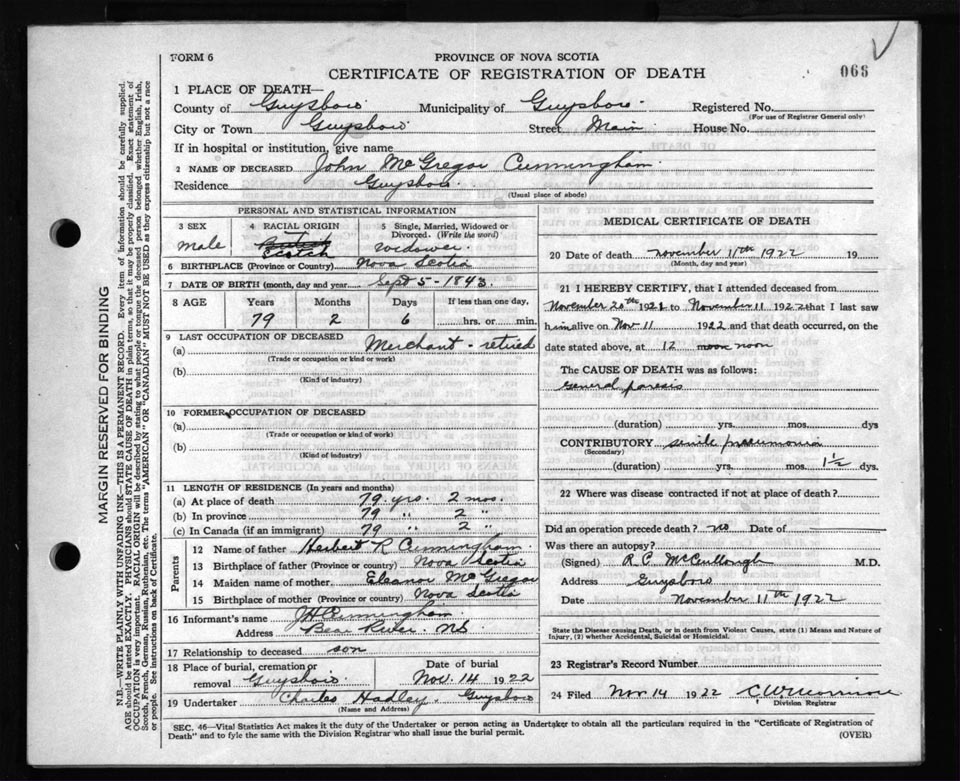 FORM 6
PROVINCE OF NOVA SCOTIA
CERTIFICATE OF REGISTRATION OF DEATH
066
1 PLACE OF DEATH—
County of Guysboro Municipality of Guysboro Registered No.
(For use of Registrar General only)
City or Town Guysboro Street Main House No.
If in hospital or institution, give name
2 NAME OF DECEASED John McGregor Cunningham
Residence Guysboro
(Usual place of abode)
PERSONAL AND STATISTICAL INFORMATION
3 SEX 4 RACIAL ORIGIN 5 Single, Married, Widowed or Divorced. (Write the word)
male Scotch widower
6 BIRTHPLACE (Province or Country) Nova Scotia
7 DATE OF BIRTH (month, day and year) Sept 5 - 1843
8 AGE Years Months Days If less than one day,
79 2 6 hrs. or min.
9 LAST OCCUPATION OF DECEASED
(a) Merchant - retired
(Trade or occupation or kind or work)
(b)
(Kind of industry)
10 FORMER OCCUPATION OF DECEASED
(a)
(Trade or occupation or kind or work)
(b)
(Kind of industry)
11 LENGTH OF RESIDENCE (In years and months)
(a) At place of death 79 yrs. 2 mos.
(b) In province 79 " 2 "
(c) In Canada (if an immigrant) 79 " 2 "
Parents
12 Name of father Herbert R Cunningham
13 Birthplace of father (Province or country) Nova Scotia
14 Maiden name of mother Eleanor McGregor
15 Birthplace of mother (Province or country) Nova Scotia
16 Informant's name Cunningham
Address Bear River. NS
17 Relationship to deceased son
18 Place of burial, cremation or removal Guysboro Date of burial Nov. 14 1922
19 Undertaker Charles Hadley, Guysboro
(Name and Address)
MEDICAL CERTIFICATE OF DEATH
20 Date of death November 11th 1922 19
(Month, day and year)
21 I HEREBY CERTIFY, that I attended deceased from
November 20th 1921 to November 11 1922 that I last saw
him alive on Nov 11 1922 and that death occurred, on the
date stated above, at 12 noon
The CAUSE OF DEATH was as follows:
General paresis
(duration) yrs. mos. dys
CONTRIBUTORY senile pneumonia
(Secondary)
(duration) yrs. mos. 1½ dys.
22 Where was disease contracted if not at place of death?
Did an operation precede death? no Date of
Was there an autopsy?
(Signed) R. C. McCullough M.D.
Address Guysboro
Date November 11th 1922
State the Disease causing Death, or in death from Violent Causes, state (1) Means and Nature of
Injury, (2) whether Accidental, Suicidal or Homicidal.
23 Registrar's Record Number
24 Filed Nov 14 1922
Division Registrar
SEC. 46—Vital Statistics Act makes it the duty of the Undertaker or person acting as Undertaker to obtain all the particulars required in the "Certificate of Registration of
Death" and to fyle the same with the Division Registrar who shall issue the burial permit.
(OVER)
MARGIN RESERVED FOR BINDING
N.B.—WRITE PLAINLY WITH UNFADING INK—THIS IS A PERMANENT RECORD. Every item of information should be carefully supplied.
AGE should be stated EXACTLY. PHYSICIANS should STATE CAUSE OF DEATH in plain terms, so that it may be properly classified. Exact statement of
OCCUPATION is very important. RACIAL ORIGIN will be described by stating to what people or tongue the deceased person belonged whether English, Irish,
Scotch, French, German, Russian, Ruthenian, etc. The terms "AMERICAN" OR "CANADIAN" MUST NOT BE USED as they express citizenship but not a race
or people. See instructions on back of Certificate.